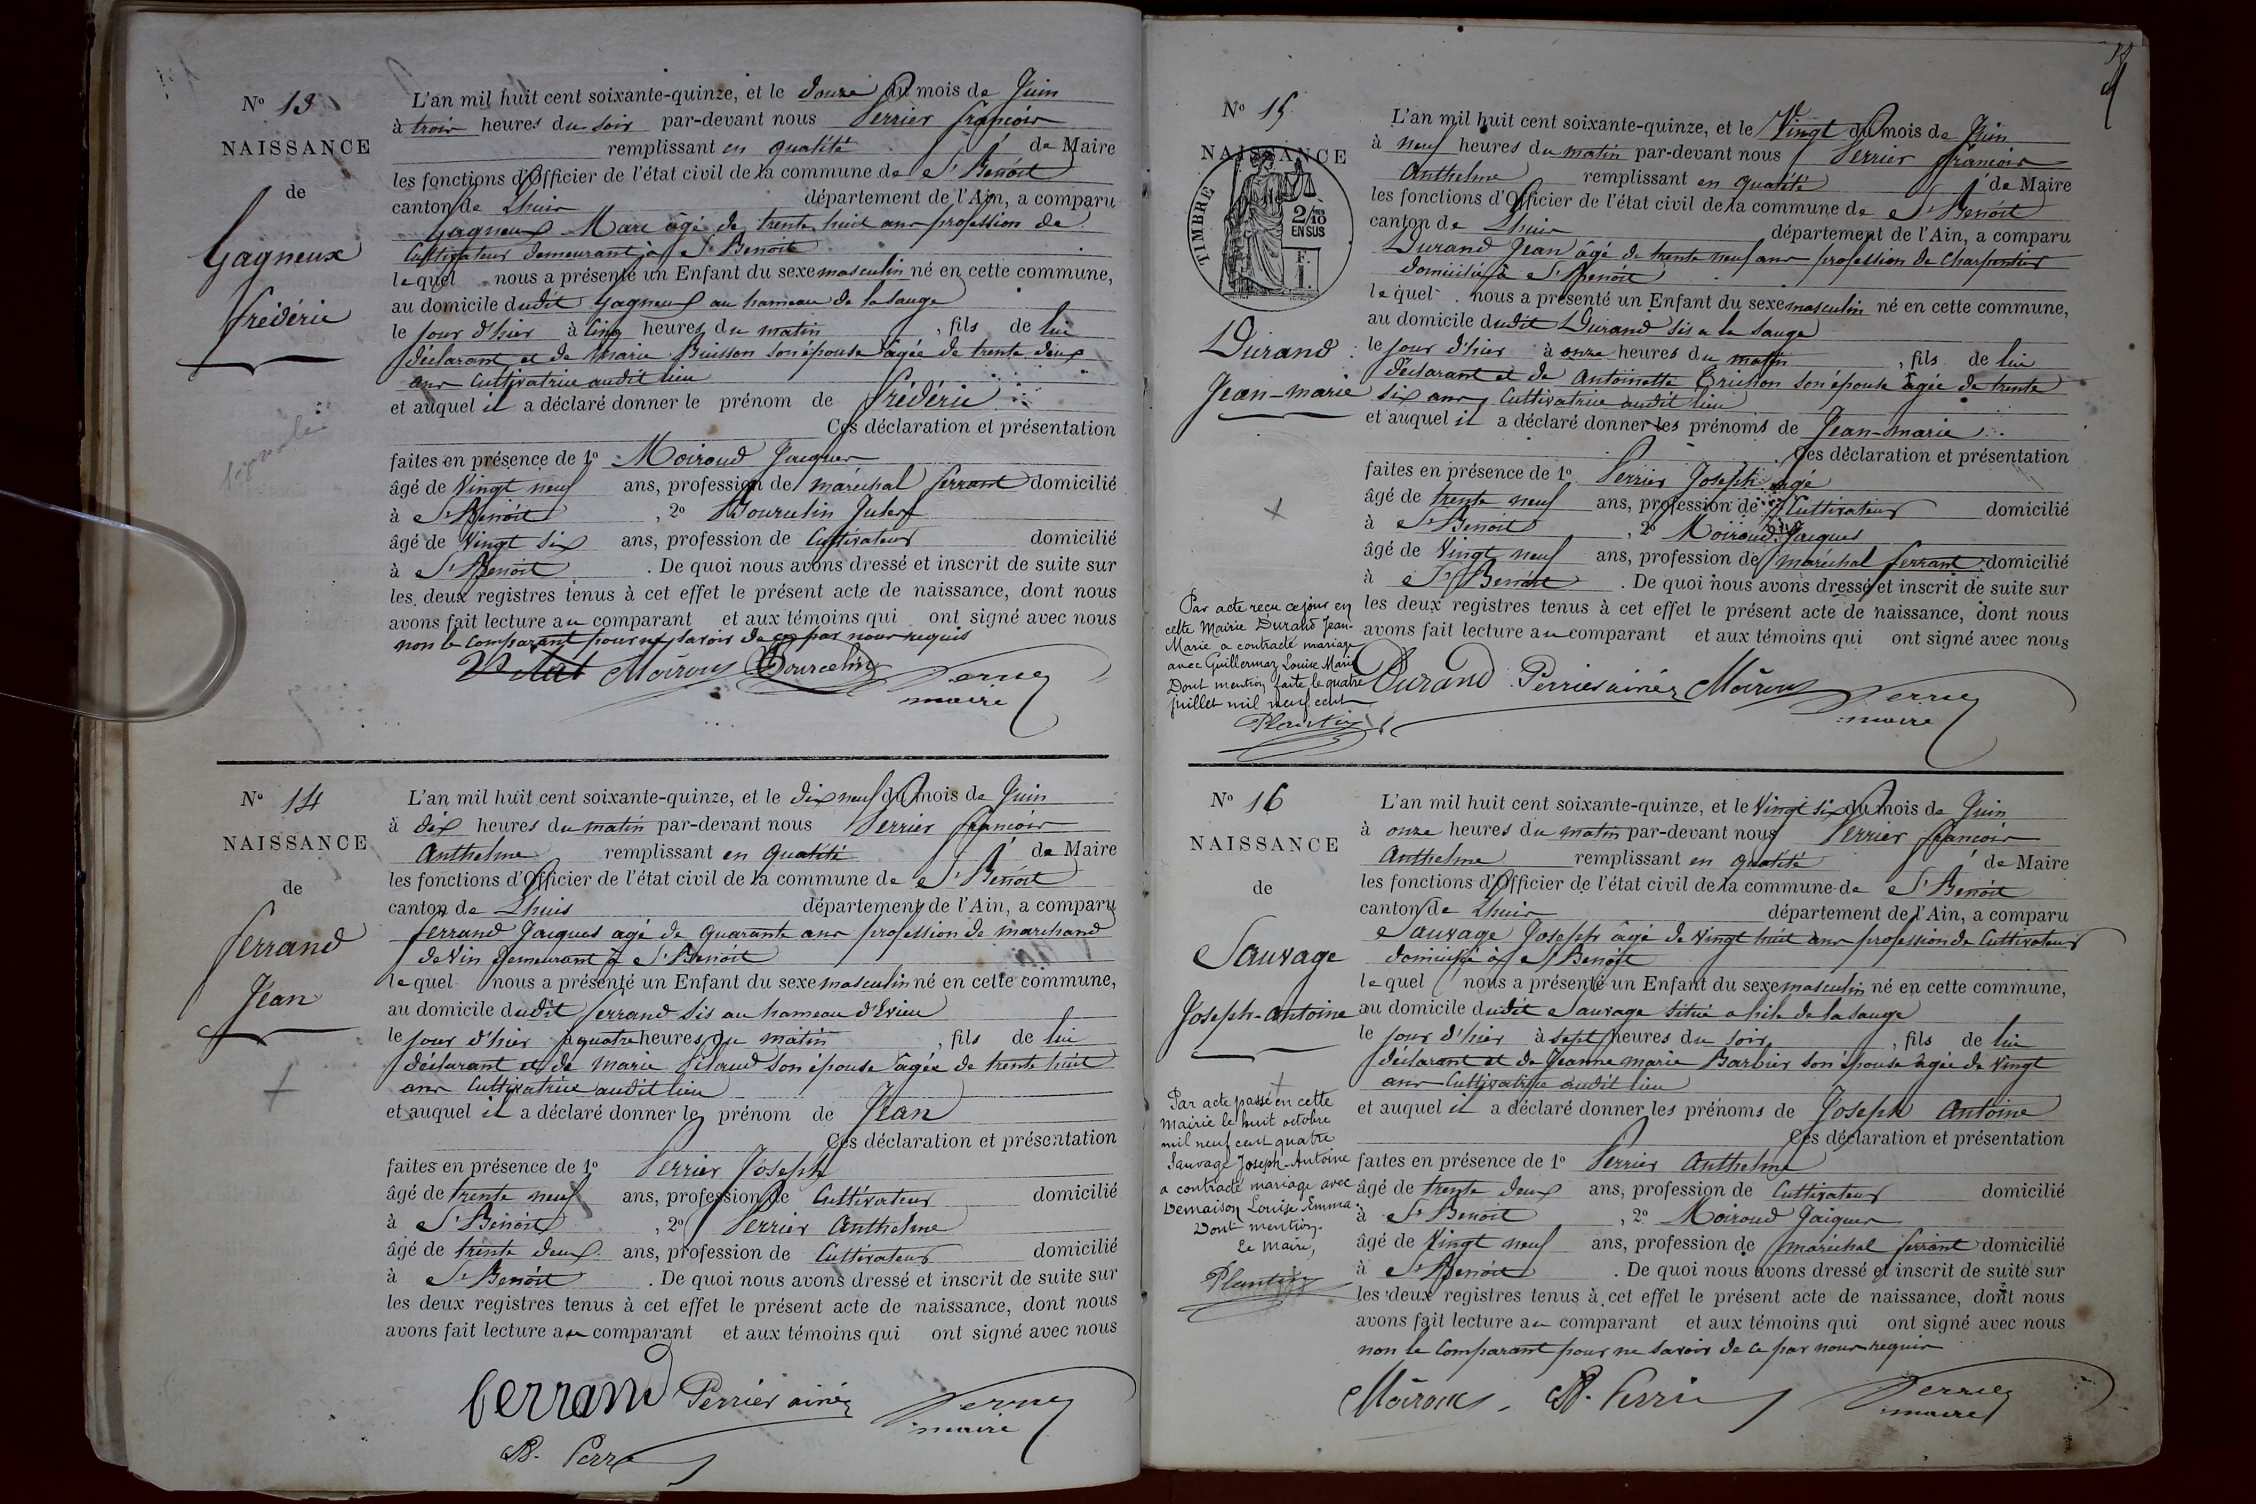 Nº 13
NAISSANCE
de
Gagneux
frédéric
L'an mil huit cent soixante-quinze, et le douze du mois de Juin
à trois heures du soir par-devant nous Perrier françois
remplissant en qualité de Maire
les fonctions d'Officier de l'état civil de la commune de St Benoit
canton de Lhuis département de l'Ain, a comparu
Gagneux Marc âgé de trente huit ans profession de
Cultivateur demeurant à St Benoit
lequel nous a présenté un Enfant du sexe masculin né en cette commune,
au domicile dudit Gagneux au hameau de la sauge
le jour d'hier à Cinq heures du matin , fils de lui
déclarant et de Marie Buisson son épouse âgée de trente deux
ans Cultivatrice audit lieu
et auquel il a déclaré donner le prénom de frédéric
Ces déclaration et présentation
faites en présence de 1º Moiroud Jacques
âgé de Vingt neuf ans, profession de maréchal ferrant domicilié
à St Benoit , 2º Bourcelin Jules
âgé de Vingt six ans, profession de Cultivateur domicilié
à St Benoit . De quoi nous avons dressé et inscrit de suite sur
les deux registres tenus à cet effet le présent acte de naissance, dont nous
avons fait lecture au comparant et aux témoins qui ont signé avec nous
non le Comparant pour ne savoir de ce par nous requis
Moiroux Bourcelin Perrier
maire
Nº 14
NAISSANCE
de
ferrand
Jean
L'an mil huit cent soixante-quinze, et le dix neuf du mois de Juin
à dix heures du matin par-devant nous Perrier françois
Anthelme remplissant en qualité de Maire
les fonctions d'Officier de l'état civil de la commune de St Benoit
canton de Lhuis département de l'Ain, a comparu
ferrand Jacques agé de quarante ans profession de marchand
de vin demeurant à St Benoit
lequel nous a présenté un Enfant du sexe masculin né en cette commune,
au domicile dudit ferrand sis au hameau d'Evieu
le jour d'hier à quatre heures du matin , fils de lui
déclarant et de marie son épouse âgée de trente huit
ans Cultivatrice audit lieu
et auquel il a déclaré donner le prénom de Jean
Ces déclaration et présentation
faites en présence de 1º Perrier Joseph
âgé de trente neuf ans, profession de Cultivateur domicilié
à St Benoit , 2º Perrier Anthelme
âgé de trente deux ans, profession de Cultivateur domicilié
à St Benoit . De quoi nous avons dressé et inscrit de suite sur
les deux registres tenus à cet effet le présent acte de naissance, dont nous
avons fait lecture au comparant et aux témoins qui ont signé avec nous
ferrand Perrier ainé Perrier
maire
Nº 15
NAISSANCE
TIMBRE
2/10
EN SUS
F.
1.
Durand
Jean-marie
L'an mil huit cent soixante-quinze, et le Vingt du mois de Juin
à neuf heures du matin par-devant nous Perrier françois
Anthelme remplissant en qualité de Maire
les fonctions d'Officier de l'état civil de la commune de St Benoit
canton de Lhuis département de l'Ain, a comparu
Durand Jean âgé de trente neuf ans profession de Charpentier
domicilié à St Benoit
lequel nous a présenté un Enfant du sexe masculin né en cette commune,
au domicile dudit Durand sis a la sauge
le jour d'hier à onze heures du matin , fils de lui
déclarant et de Antoinette son épouse âgée de trente
six ans Cultivatrice audit lieu
et auquel il a déclaré donner les prénoms de Jean-marie
Ces déclaration et présentation
faites en présence de 1º Perrier Joseph agé
âgé de trente neuf ans, profession de Cultivateur domicilié
à St Benoit , 2º Moiroud Jacques
âgé de Vingt neuf ans, profession de maréchal ferrant domicilié
à St Benoit . De quoi nous avons dressé et inscrit de suite sur
les deux registres tenus à cet effet le présent acte de naissance, dont nous
avons fait lecture au comparant et aux témoins qui ont signé avec nous
Par acte recu ce jour en
cette Mairie Durand Jean-
Marie a contracté mariage
avec Guillermoz Louise Marie
Dont mention faite le quatre
juillet mil neuf cent
Plantin
Durand Perrier ainé Moiroux Perrier
maire
Nº 16
NAISSANCE
de
Sauvage
Joseph-Antoine
L'an mil huit cent soixante-quinze, et le Vingt six du mois de Juin
à onze heures du matin par-devant nous Perrier françois
Anthelme remplissant en qualité de Maire
les fonctions d'Officier de l'état civil de la commune de St Benoit
canton de Lhuis département de l'Ain, a comparu
Sauvage Joseph âgé de vingt huit ans profession de Cultivateur
domicilié à St Benoit
lequel nous a présenté un Enfant du sexe masculin né en cette commune,
au domicile dudit Sauvage situé a de la sauge
le jour d'hier à sept heures du soir , fils de lui
déclarant et de Jeanne marie Barbier son épouse âgée de vingt
ans Cultivatrice audit lieu
et auquel il a déclaré donner les prénoms de Joseph Antoine
Ces déclaration et présentation
faites en présence de 1º Perrier Anthelme
âgé de trente deux ans, profession de Cultivateur domicilié
à St Benoit , 2º Moiroud Jacques
âgé de Vingt neuf ans, profession de maréchal ferrant domicilié
à St Benoit . De quoi nous avons dressé et inscrit de suite sur
les deux registres tenus à cet effet le présent acte de naissance, dont nous
avons fait lecture au comparant et aux témoins qui ont signé avec nous
non le Comparant pour ne savoir de ce par nous requis
Par acte passé en cette
Mairie le huit octobre
mil neuf cent quatre
Sauvage Joseph-Antoine
a contracté mariage avec
Demaison Louise Emma.
Dont mention.
Le Maire,
Plantin
Moiroux Perrier
maire